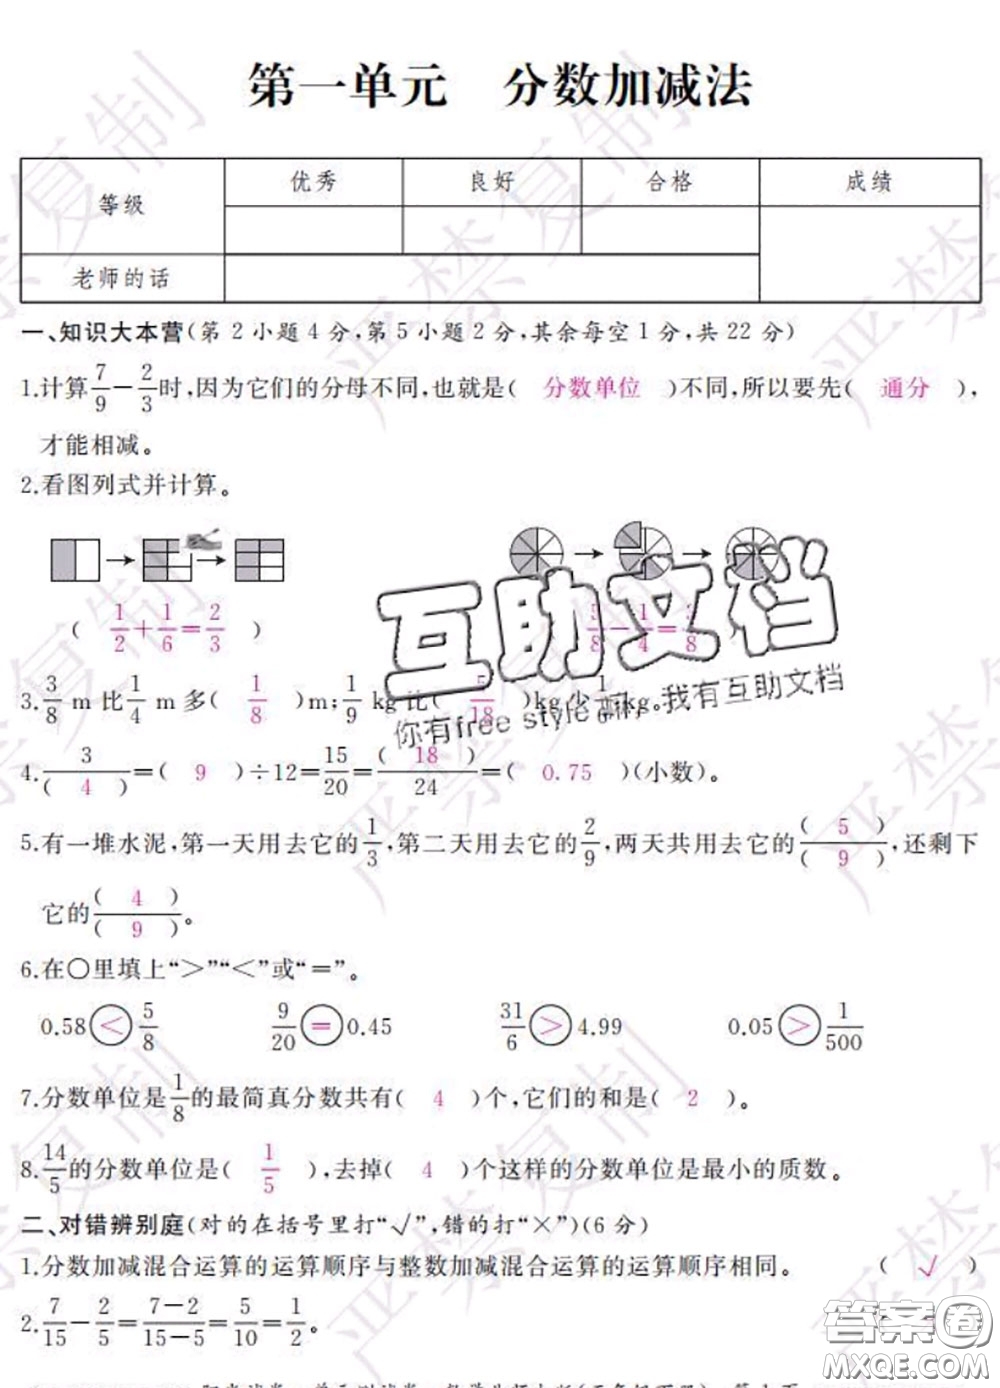 第一单元 分数加减法
等级 优秀 良好 合格 成绩
老师的话
一、知识大本营(第 2 小题 4 分,第 5 小题 2 分,其余每空 1 分,共 22 分)
1.计算7/9－2/3时,因为它们的分母不同,也就是( 分数单位 )不同,所以要先( 通分 ),
才能相减。
2.看图列式并计算。
( 1/2＋1/6＝2/3 ) 5/8－1/4＝3/8 )
3.3/8 m 比1/4 m 多( 1/8 )m;1/9 kg 比( 5/18 )kg 少1/6 kg。
4.3/( 4 )＝( 9 )÷12＝15/20＝( 18 )/24＝( 0.75 )(小数)。
5.有一堆水泥,第一天用去它的1/3,第二天用去它的2/9,两天共用去它的( 5 )/( 9 ),还剩下
它的( 4 )/( 9 )。
6.在○里填上“＞”“＜”或“＝”。
0.58 ＜ 5/8 9/20 ＝ 0.45 31/6 ＞ 4.99 0.05 ＞ 1/500
7.分数单位是1/8的最简真分数共有( 4 )个,它们的和是( 2 )。
8.14/5的分数单位是( 1/5 ),去掉( 4 )个这样的分数单位是最小的质数。
二、对错辨别庭(对的在括号里打“√”,错的打“×”)(6 分)
1.分数加减混合运算的运算顺序与整数加减混合运算的运算顺序相同。 ( √ )
2.7/15－2/5＝7－2/15－5＝5/10＝1/2。
互助文档
你有free style嘛,我有互助文档
严禁复制
答案圈
MXQE.COM